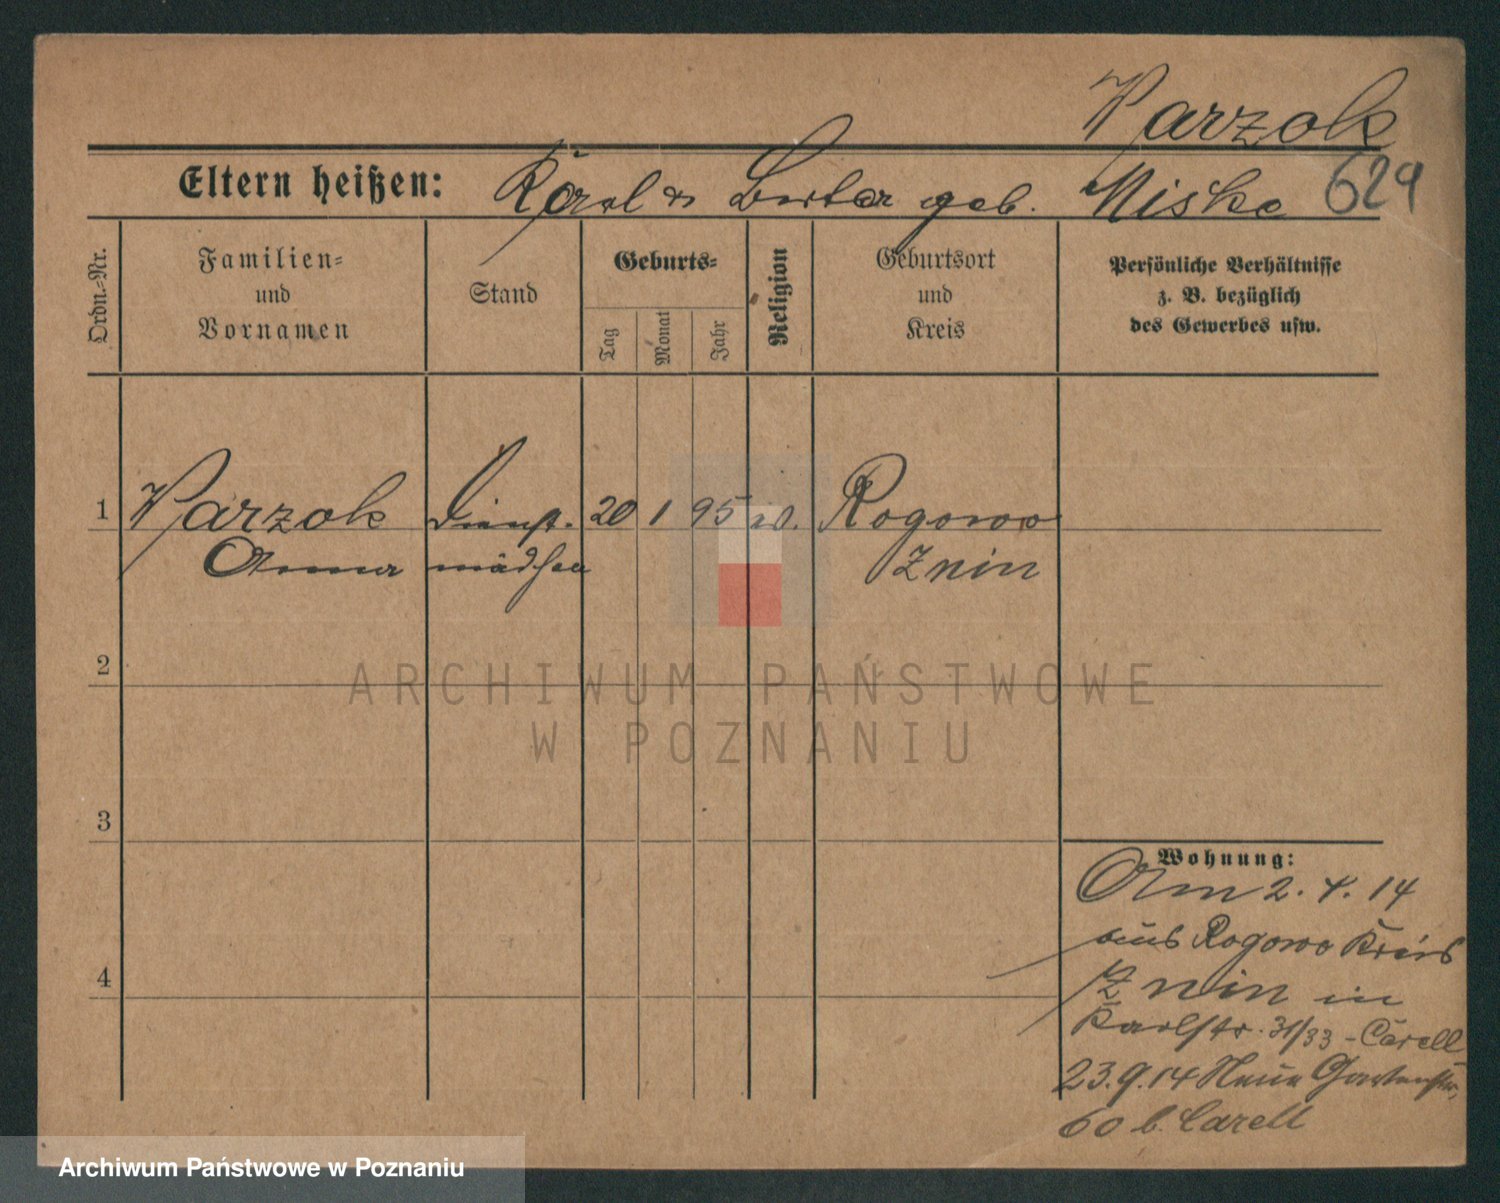 Warzok
Eltern heißen: Karl u Berta geb. Miske 629
Ordn.-Nr.
Familien-
und
Vornamen
Stand
Geburts-
Tag
Monat
Jahr
Religion
Geburtsort
und
Kreis
Persönliche Verhältnisse
z. B. bezüglich
des Gewerbes usw.
1 Warzok Dienst- 20 1 95 Rogowo
Anna mädchen Znin
2
3
4
Wohnung:
Am 2. 4. 14
aus Rogowo Kreis
Znin in
Karlstr. 31/33 - Carell
23.9.14 Neue Gartenstr.
60 b. Carell
ARCHIWUM PAŃSTWOWE
W POZNANIU
Archiwum Państwowe w Poznaniu